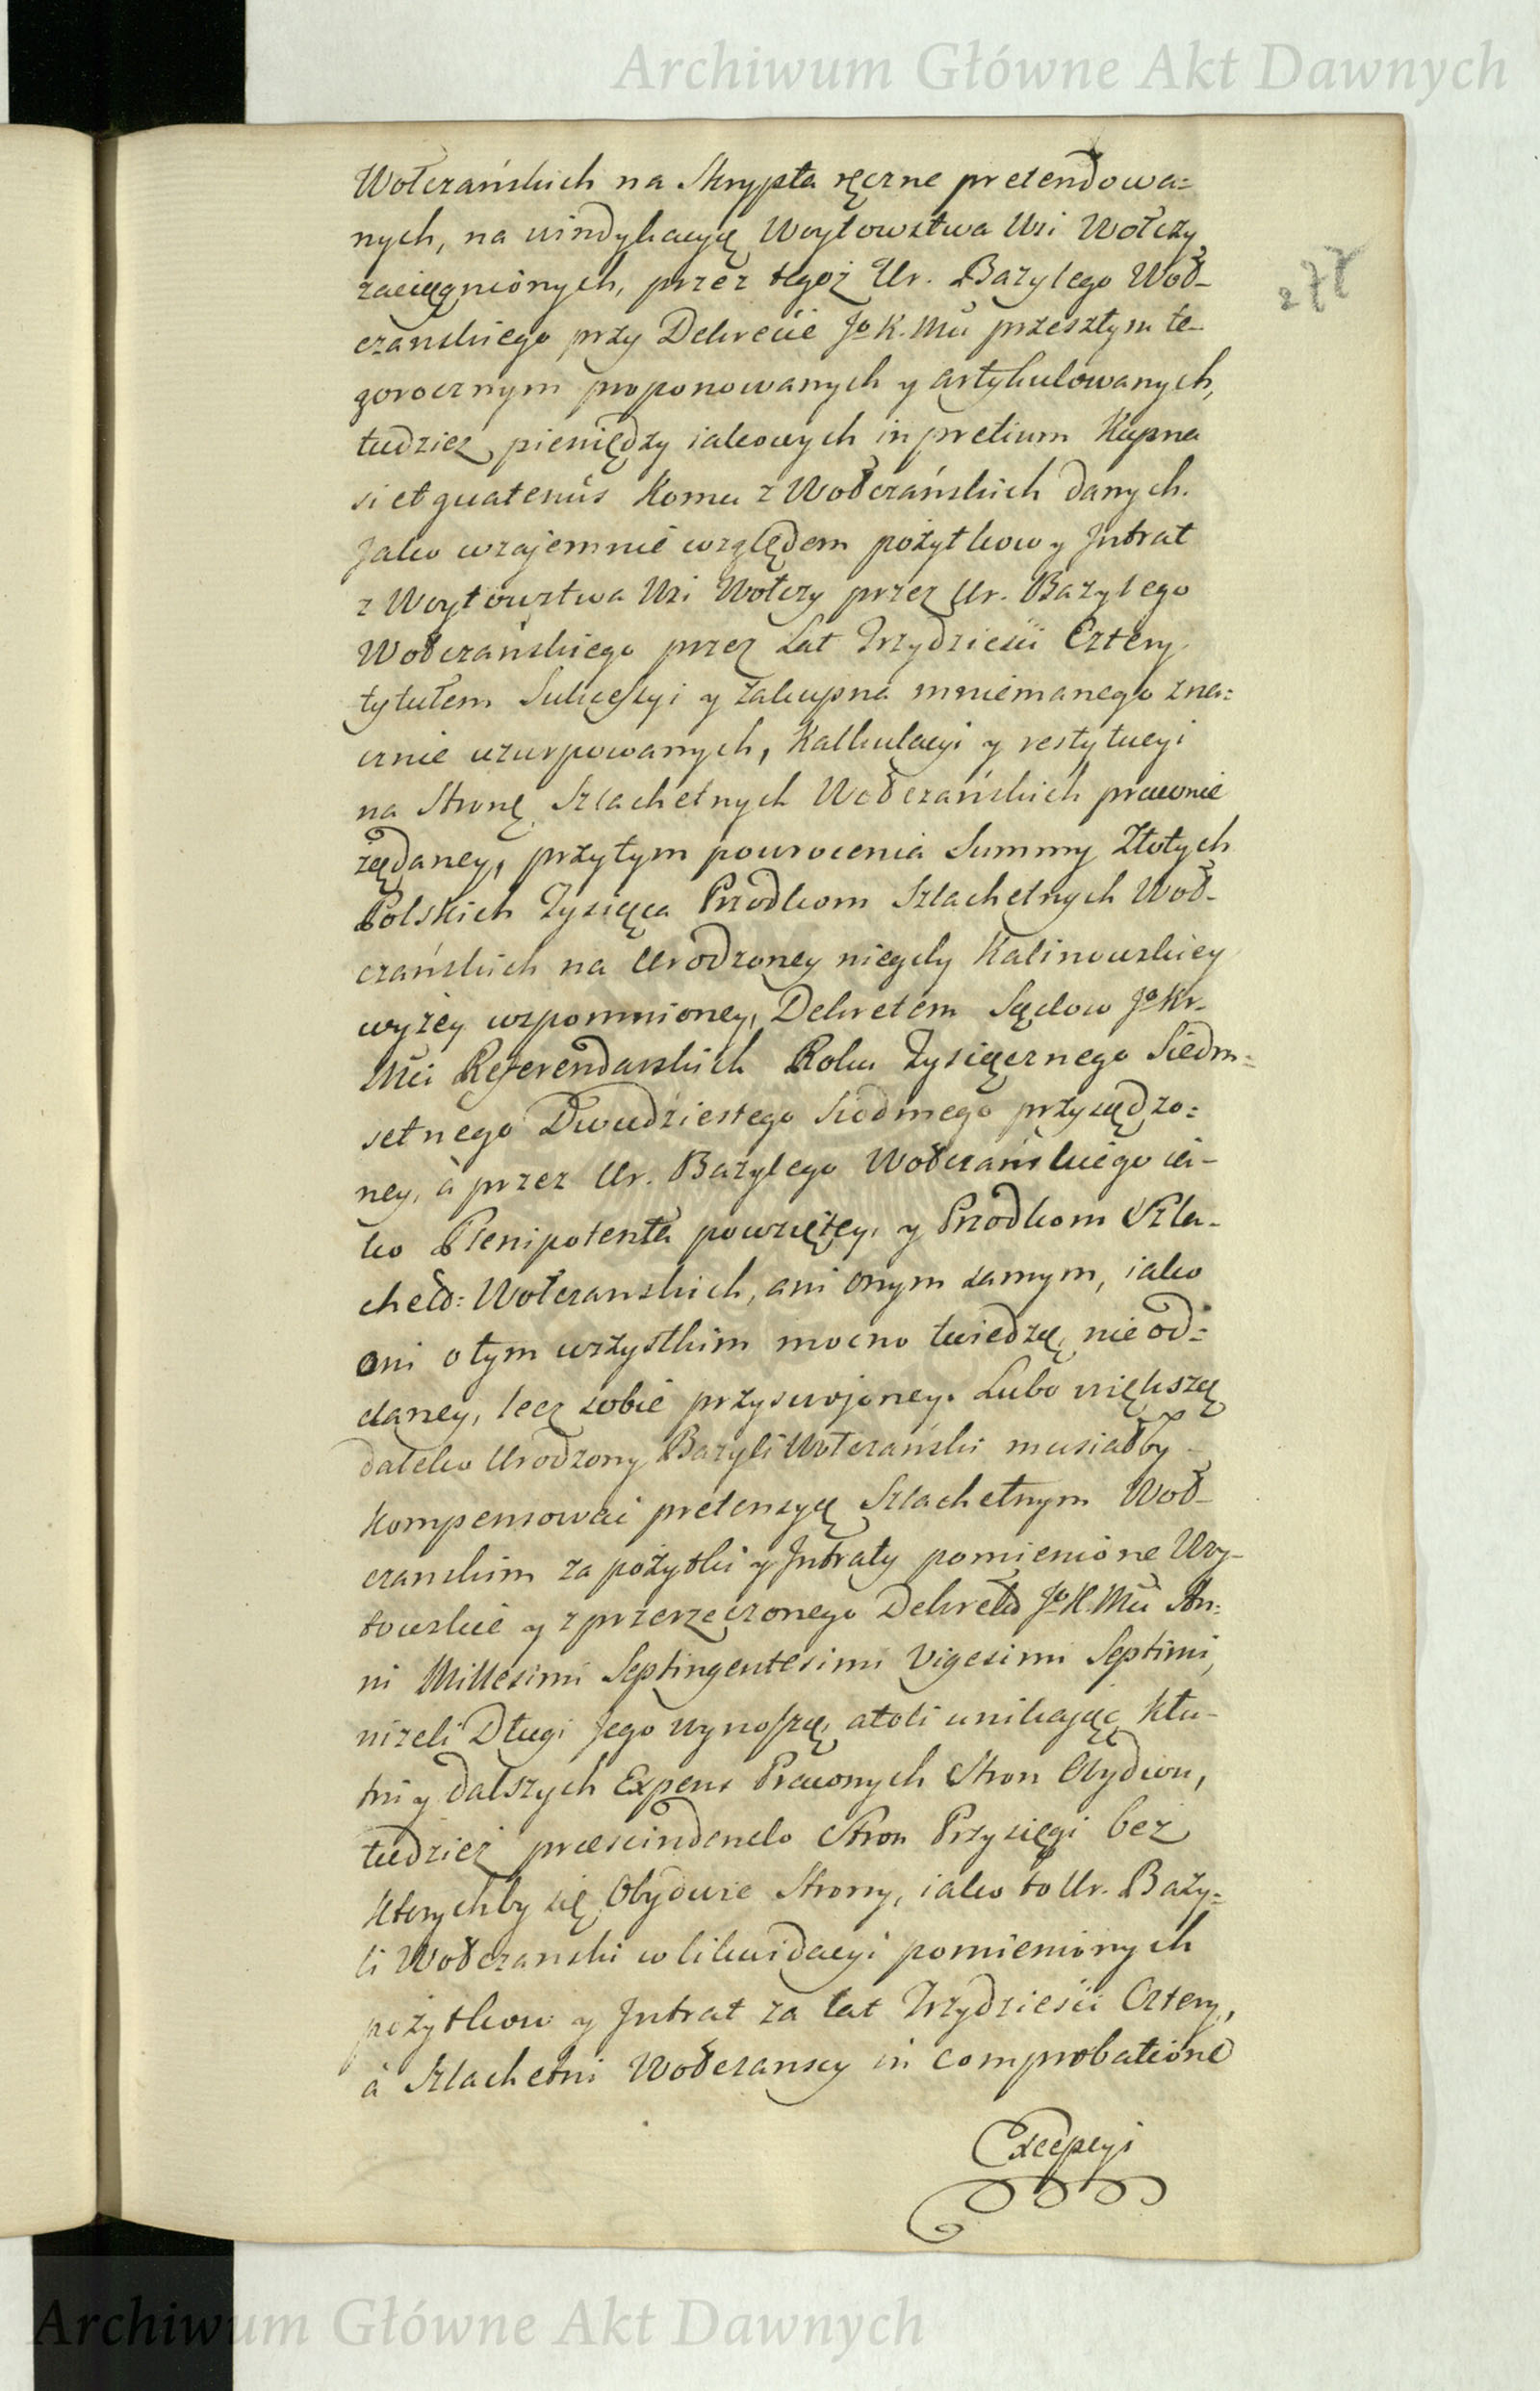 Archiwum Główne Akt Dawnych
Wołczańskich na Skrypta ręczne pretendowa=
nych, na windykacyą Woytowstwa Wsi Wołczy
zaciągnionych, przez tegoż Ur. Bazylego Woł-
czanskiego przy Dekrecie Jo K. Mći przeszłym te-
gorocznym proponowanych y artykulowanych,
tudziez pieniędzy iakowych in pretium Kupna
si et quatenús Komu z Wołczańskich danych.
Jako wzajemnie względem pożytkow y Intrat
z Woytowstwa Wsi Wołczy przez Ur. Bazylego
Wołczańskiego przez Lat Trzydzieści Cztery
tytułem Sukcessyi y zakupna mniemanego zna=
cznie uzurpowanych, Kalkulacyi y restytucyi
na Stronę Szlachetnych Wołczańskich prawnie
żądaney, przytym powrocenia Summy Złotych
Polskich Tysiąca Przodkom Szlachetnych Woł-
czańskich na Urodzoney niegdy Kalinowskiey
wyżey wspomnioney, Dekretem Sądow Jo Kr-
Mći Referendarskich Roku Tysiącznego Siedm=
setnego Dwudziestego Siodmego przysądzo=
ney, à przez Ur. Bazylego Wołczańskiego ia-
ko Plenipotenta powziętey, y Przodkom Szla-
chet: Wołczanskich, ani onym samym, iako
oni o tym wszystkim mocno twiedzą, nie od=
daney, lecz sobie przyswojoney. Lubo większą
daleko Urodzony Bazyli Wołczański musiałby
Kompensować pretensyą Szlachetnym Woł-
czanskim za pożytki y Intraty pomienione Woy-
towskie y z przerzeczonego Dekretu Jo K. Mći An=
ni Millesimi Septingentesimi Vigesimi Septimi,
niżeli Długi Jego wynoszą, atoli unikając Kłu-
tni y dalszych Expens Prawnych Stron Obydwu,
tudzież praescindendo Stron Przysięgi bez
Ktorychby się Obydwie Strony, iako to Ur. Bazy=
li Wołczanski w likwidacyi pomienionych
pożytkow y Intrat za lat Trzydzieści Cztery,
à Szlachetni Wołczanscy in comprobatione
Excepcyi
Archiwum Główne Akt Dawnych